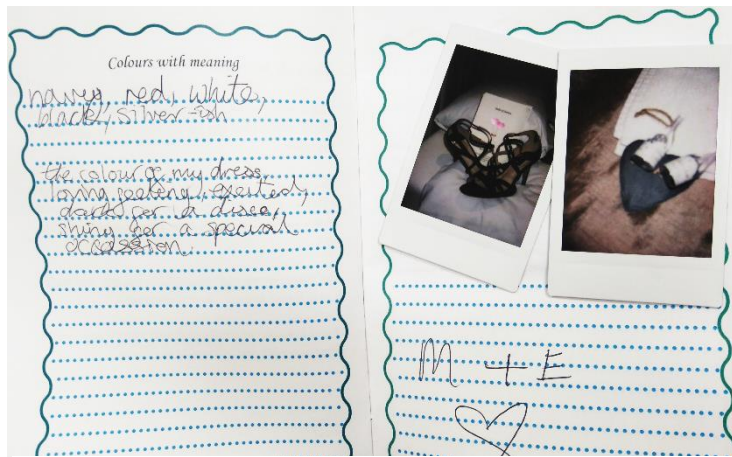 Colours with meaning
navy, red, white,
black, silver-ish
the colour of my dress,
loving feeling, excited,
dark for a disco,
shiny for a special
occassion.
M + E